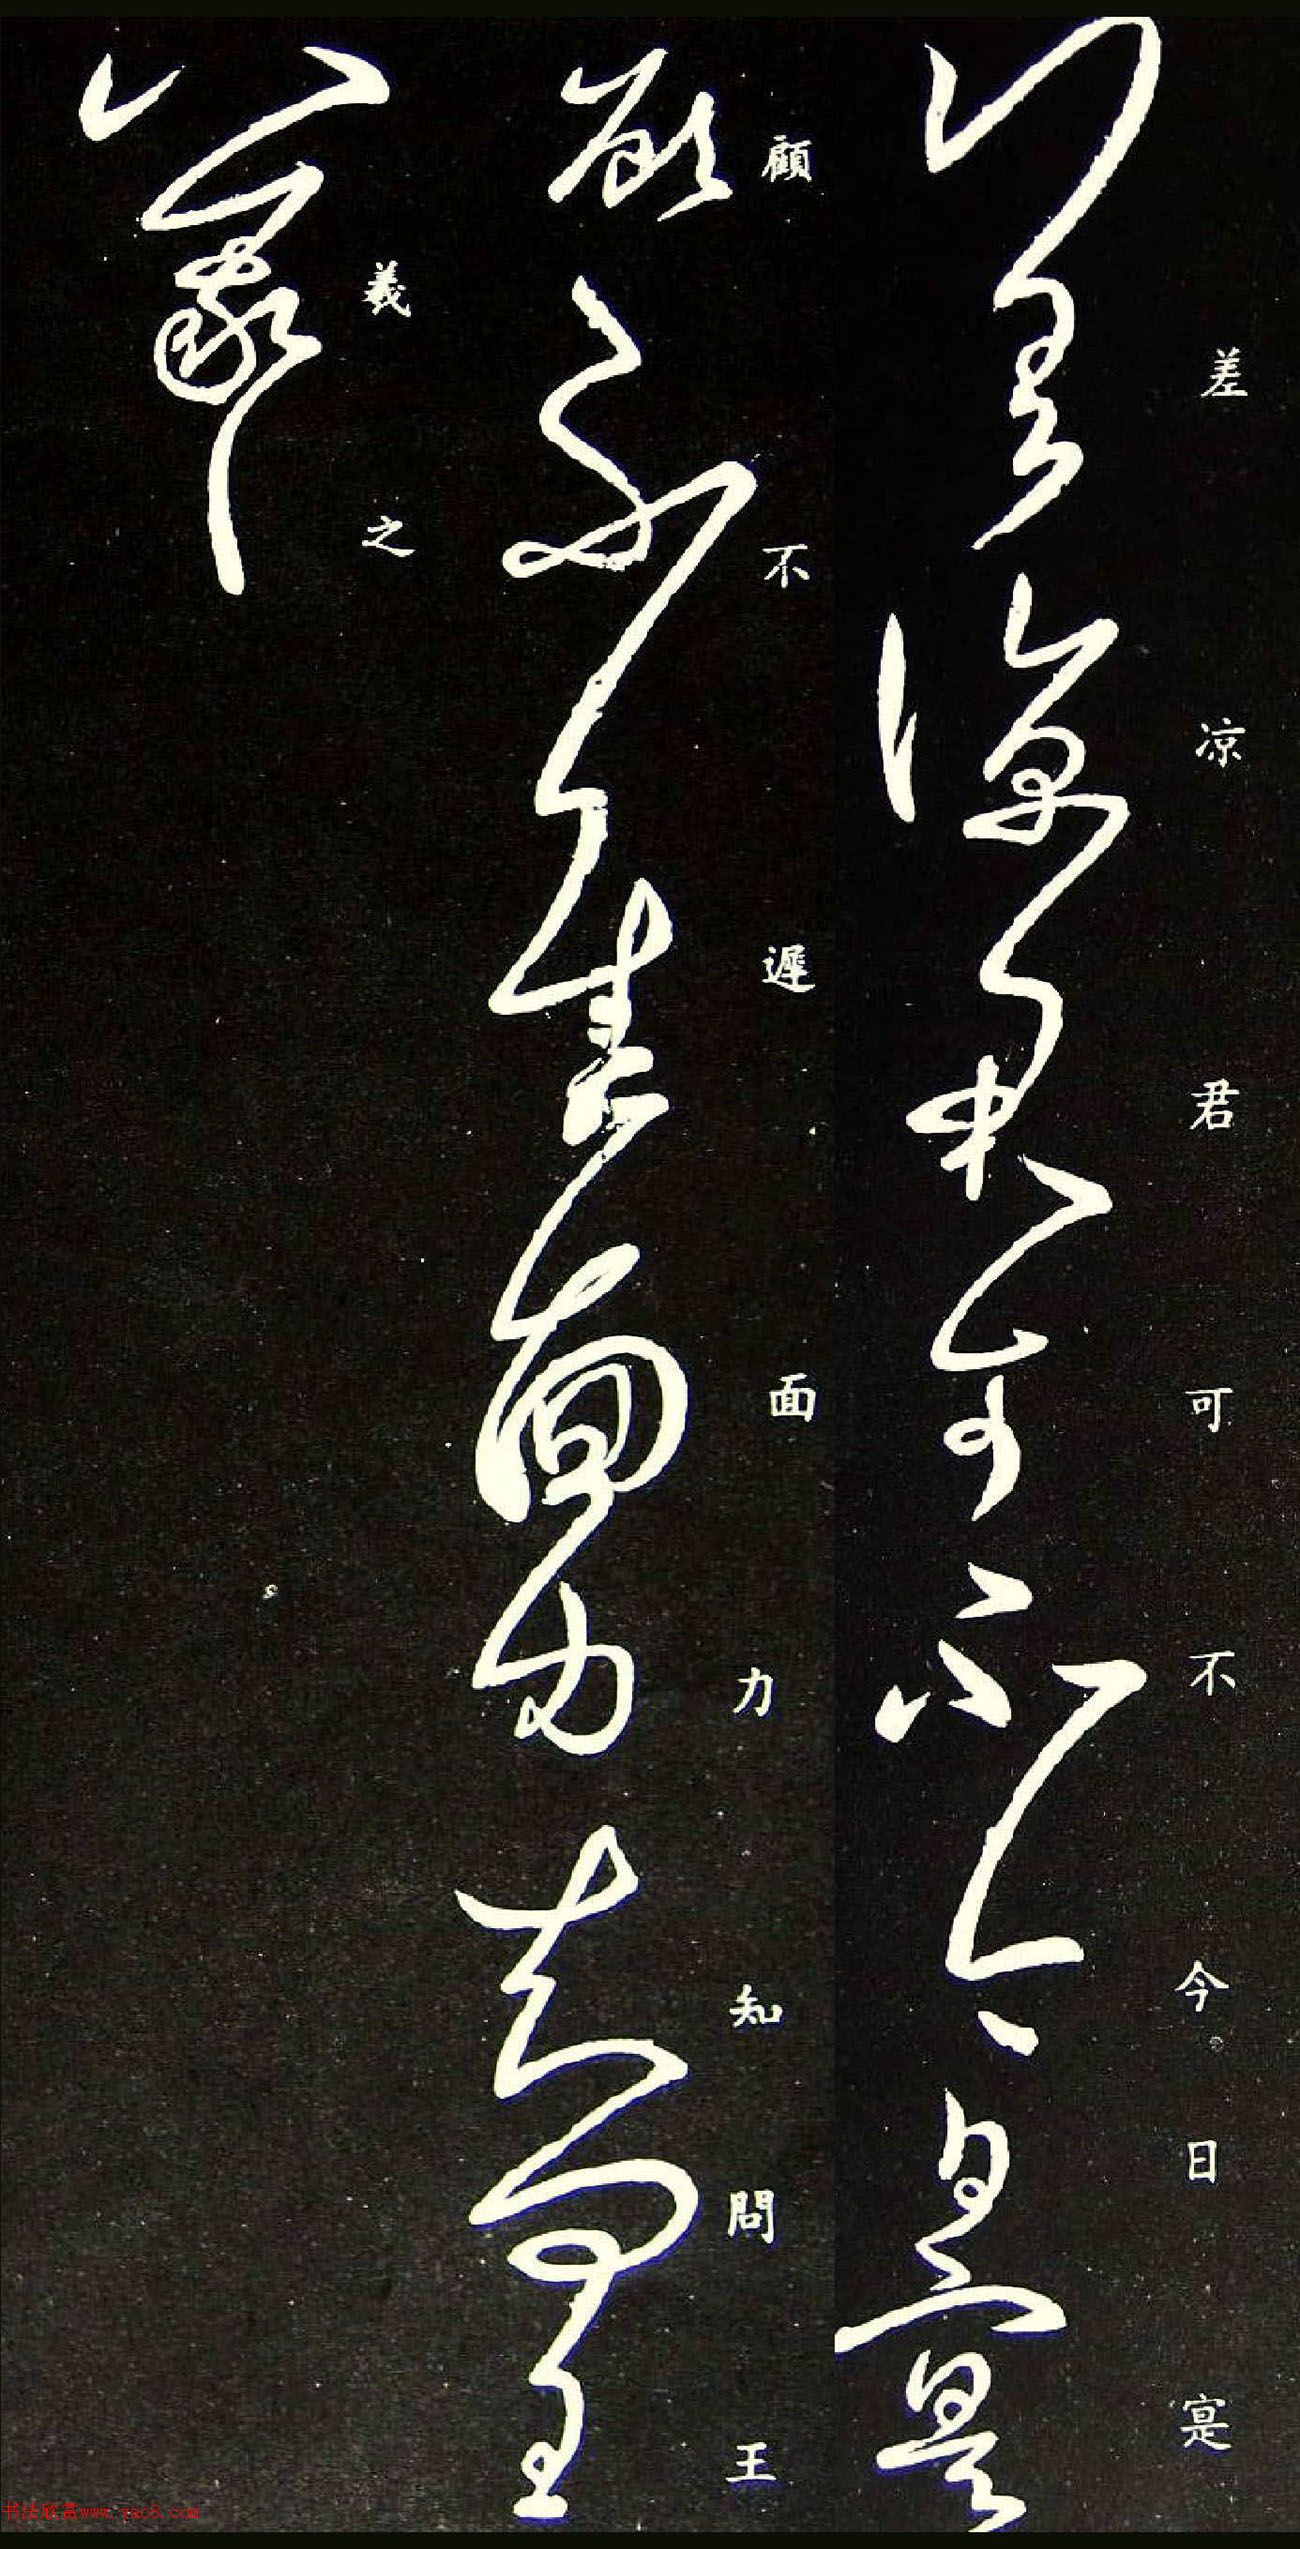 差凉君可不今日寔
顧不遲面力知問王
羲之
书法欣赏www.yac8.com